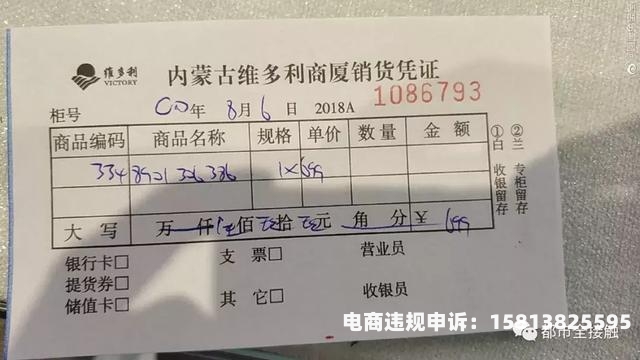 维多利
VICTORY
内蒙古维多利商厦销货凭证
柜号 年 8月6日 2018A 1086793
商品编码 商品名称 规格 单价 数量 金额
334 8921 326 386 1×699
大写 万 仟 佰 拾 元 角 分 ¥ 699
银行卡□ 支票□ 营业员
提货券□
储值卡□ 其它□ 收银员
①白 收银留存
②兰 专柜留存
电商违规申诉：15813825595
都市全接触